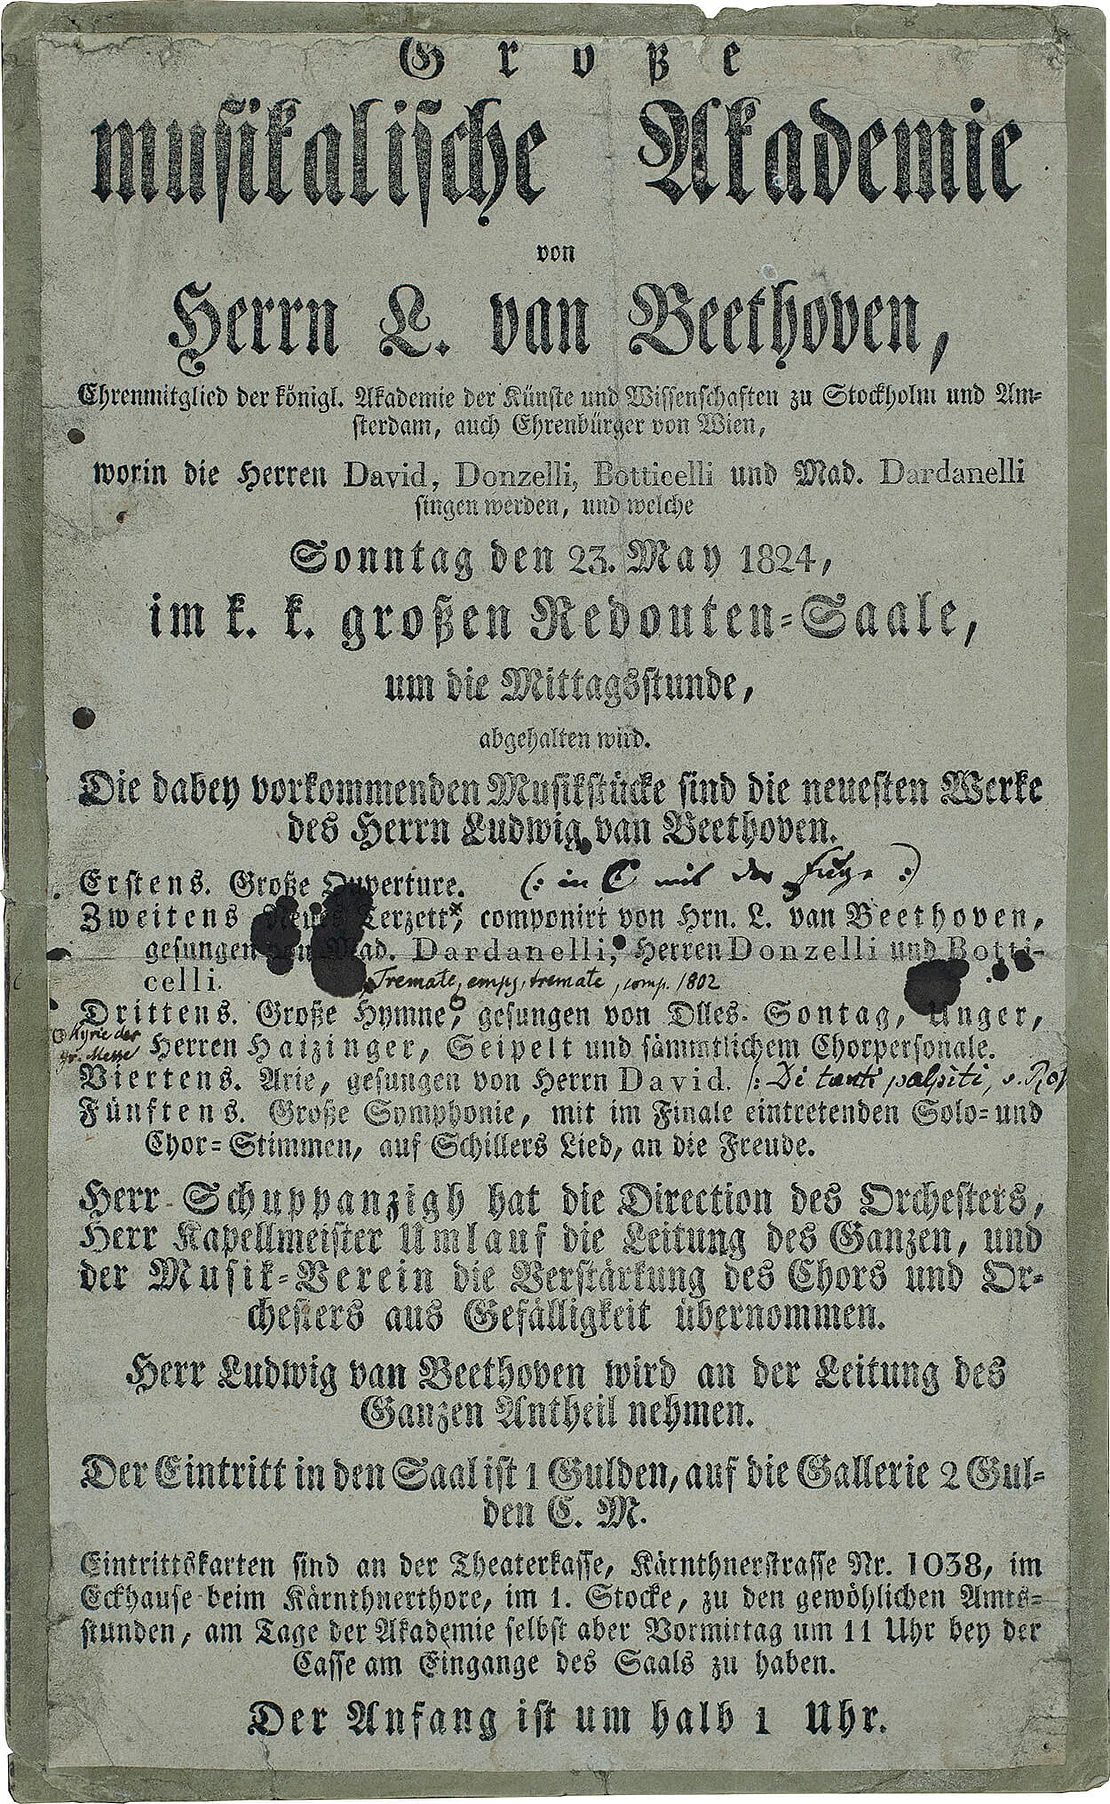 Große
musikalische Akademie
von
Herrn L. van Beethoven,
Ehrenmitglied der königl. Akademie der Künste und Wissenschaften zu Stockholm und Am-
sterdam, auch Ehrenbürger von Wien,
worin die Herren David, Donzelli, Botticelli und Mad. Dardanelli
singen werden, und welche
Sonntag den 23. May 1824,
im k. k. großen Redouten-Saale,
um die Mittagsstunde,
abgehalten wird.
Die dabey vorkommenden Musikstücke sind die neuesten Werke
des Herrn Ludwig van Beethoven.
Erstens. Große Ouverture. (: in C mit der Fuge :)
Zweitens Neues Terzett, componirt von Hrn. L. van Beethoven,
gesungen von Mad. Dardanelli, Herren Donzelli und Botti-
celli. Tremate, empj, tremate, comp. 1802
Drittens. Große Hymne, gesungen von Dlles. Sontag, Unger,
Kyrie der
gr. Messe
Herren Haizinger, Seipelt und sämmtlichem Chorpersonale.
Viertens. Arie, gesungen von Herrn David. /: Di tanti palpiti, v. Ros
Fünftens. Große Symphonie, mit im Finale eintretenden Solo- und
Chor-Stimmen, auf Schillers Lied, an die Freude.
Herr Schuppanzigh hat die Direction des Orchesters,
Herr Kapellmeister Umlauf die Leitung des Ganzen, und
der Musik-Verein die Verstärkung des Chors und Or-
chesters aus Gefälligkeit übernommen.
Herr Ludwig van Beethoven wird an der Leitung des
Ganzen Antheil nehmen.
Der Eintritt in den Saal ist 1 Gulden, auf die Gallerie 2 Gul-
den C. M.
Eintrittskarten sind an der Theaterkasse, Kärnthnerstrasse Nr. 1038, im
Eckhause beim Kärnthnerthore, im 1. Stocke, zu den gewöhlichen Amts-
stunden, am Tage der Akademie selbst aber Vormittag um 11 Uhr bey der
Casse am Eingange des Saals zu haben.
Der Anfang ist um halb 1 Uhr.